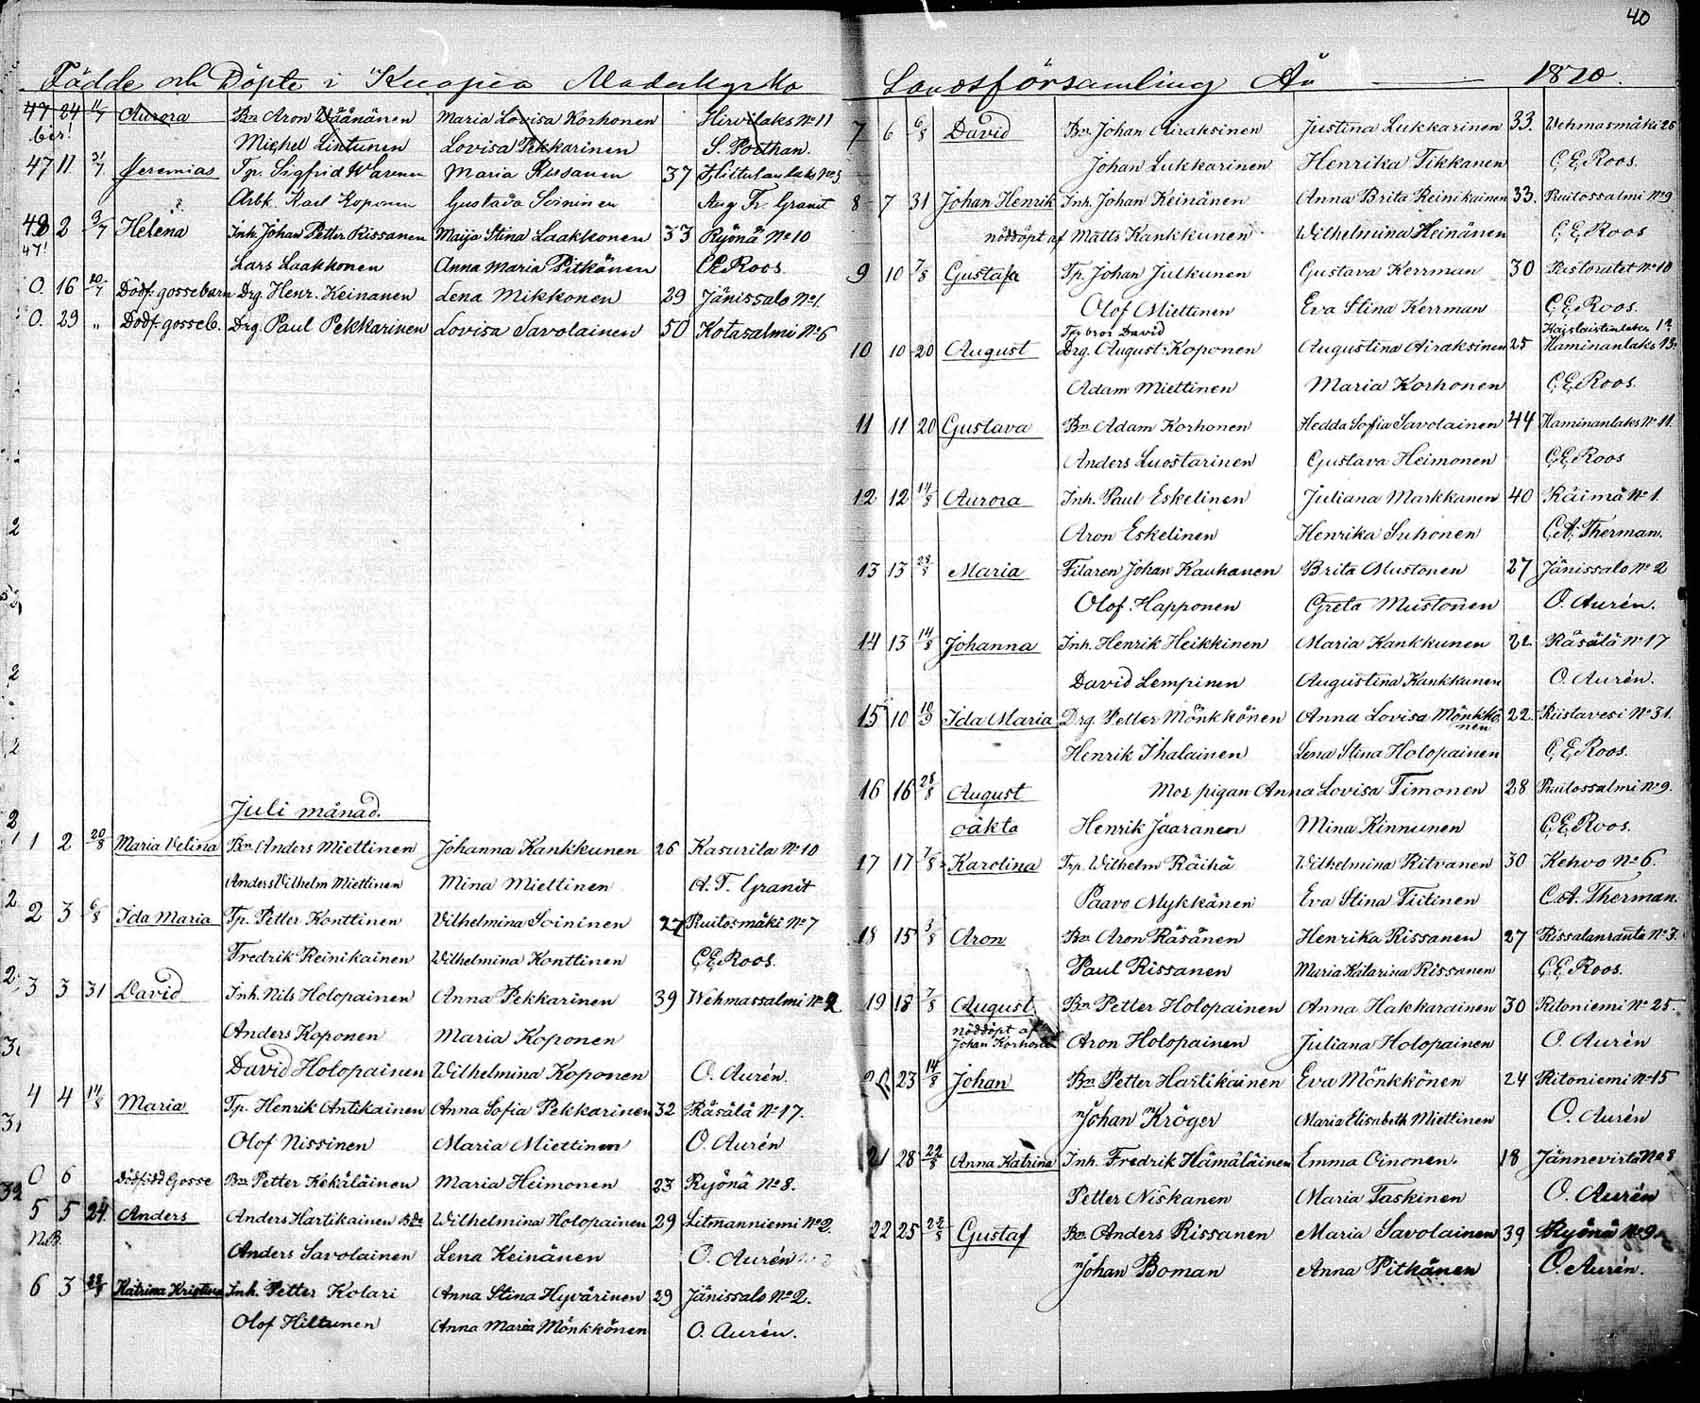 40
Fädde och Döpte i Kuopio Moderkyrko
47 24 11/7 Aurora Bn Aron Väänänen Maria Lovisa Korhonen Hirvilaks No 11
bis! Michel Lintunen Lovisa Pekkarinen S. Porthan.
47 11 Jeremias Tp. Sigfrid Warinen Maria Rissanen 37
Arbk. Karl Koponen Gustava Soininen Aug. Fr. Granit
2 3/7 Helena Inh. Johan Petter Rissanen Maija Stina Laakkonen 33 Ryönä No 10
47! Lars Laakkonen Anna Maria Pitkänen C.E. Roos.
0. 16 Dödf. gossebarn Drg. Henr. Keinanen Lena Mikkonen 29 Jänissalo No 1.
0. 29 " Dödf. gosseb. Drg. Paul Pekkarinen Lovisa Savolainen 50 Kotasalmi No 6
Juli månad.
1 2 20/8 Maria Velina Bn Anders Miettinen Johanna Kankkunen 26 Kasurila No 10
Anders Vilhelm Miettinen Mina Miettinen A. F. Granit
2 3 6/8 Ida Maria Tp. Petter Konttinen Vilhelmina Soininen 27 Ruilosmäki No 7
Fredrik Reinikainen Wilhelmina Konttinen C.E. Roos.
3 3 31 David Inh. Nils Holopainen Anna Pekkarinen 39 Wehmassalmi No 2
Anders Koponen Maria Koponen
David Holopainen Wilhelmina Koponen O. Aurén.
4 4 14/8 Maria Tp. Henrik Antikainen Anna Sofia Pekkarinen 32 Räsälä No 17.
Olof Nissinen Maria Miettinen O. Aurén
0 6 Dödfödd Gosse Bn Petter Kekäläinen Maria Heimonen 23 Ryönä No 8.
5 5 24 Anders Anders Hartikainen Bde Wilhelmina Holopainen 29 Litmanniemi No 2.
NB. Anders Savolainen Lena Keinänen O. Aurén
6 3 Katrina Kristina Inh. Petter Kolari Anna Stina Hyvärinen 29 Jänissalo No 2.
Olof Hiltunen Anna Maria Mönkkönen O. Aurén.
Landsförsamling År 1870.
7 6 6/8 David Bn Johan Airaksinen Justina Lukkarinen 33. Vehmasmäki 25
Johan Lukkarinen Henrika Tikkanen C.E. Roos.
8 7 31 Johan Henrik Inh. Johan Keinänen Anna Brita Reinikainen 33. Ruitossalmi No 9
nöddöpt af Matts Kankkunen Wilhelmina Heinänen C.E. Roos
9 10 7/8 Gustafa Tp. Johan Julkunen Gustava Kerrman 30 Pastoratet No 10
Olof Miettinen Eva Stina Kerrman C.E. Roos.
Tp. bror David
10 10 20 August Drg. August Koponen Augustina Airaksinen 25 Haminanlaks 13.
Adam Miettinen Maria Korhonen C.E. Roos.
11 11 20 Gustava Bn Adam Korhonen Hedda Sofia Savolainen 44 Haminanlaks No 11.
Anders Luostarinen Gustava Heimonen C.E. Roos
12 12 14/8 Aurora Inh. Paul Eskelinen Juliana Markkanen 40 Räimä No 1.
Aron Eskelinen Henrika Suhonen C.A. Therman.
13 13 28/8 Maria Filaren Johan Kauhanen Brita Mustonen 27 Jänissalo No 2
Olof Happonen Greta Mustonen O. Aurén.
14 13 14/8 Johanna Inh. Henrik Heikkinen Maria Kankkunen 22 Räsälä No 17
David Lempinen Augustina Kankkunen O. Aurén.
15 10 Ida Maria Drg. Petter Mönkkönen Anna Lovisa Mönkkönen 22. Riistavesi No 31.
Henrik Ihalainen Lena Stina Holopainen C.E. Roos.
16 16 28/8 August Mor pigan Anna Lovisa Timonen 28 Ruitossalmi No 9.
oäkta Henrik Jaaranen Mina Kinnunen C.E. Roos.
17 17 7/8 Karolina Tp. Wilhelm Räihä Wilhelmina Ritvanen 30 Kehvo No 6.
Paavo Mykkänen Eva Stina Tiitinen C.A. Therman.
18 15 3/8 Aron Bn Aron Räsänen Henrika Rissanen 27 Rissalanranta No 3.
Paul Rissanen Maria Katarina Rissanen C.E. Roos.
19 18 7/8 August Bn Petter Holopainen Anna Hakkarainen 30 Ritoniemi No 25.
nöddöpt af Johan Korhonen Aron Holopainen Juliana Holopainen O. Aurén
20 23 14/8 Johan Bn Petter Hartikainen Eva Mönkkönen 24 Ritoniemi No 15
Johan Kröger Maria Elisabeth Miettinen O. Aurén
21 28 22/8 Anna Katrina Inh. Fredrik Hämäläinen Emma Oinonen. 18 Jännevirta No 8
Petter Niskanen Maria Taskinen O. Aurén
22 25 22/8 Gustaf Bn Anders Rissanen Maria Savolainen 39 Ryönä No 9
Johan Boman Anna Pitkänen O. Aurén.